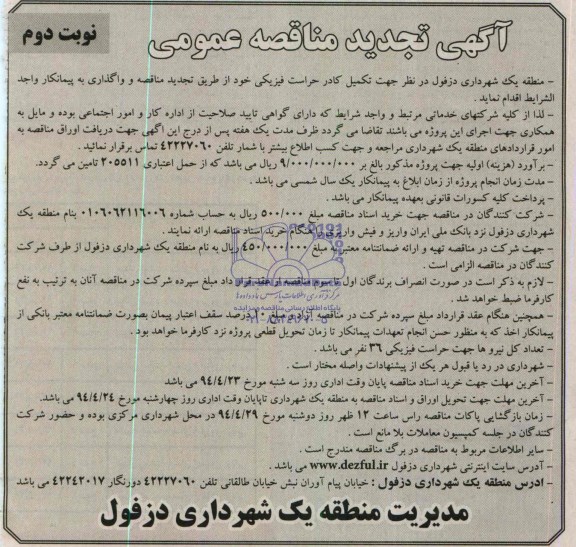 آگهی تجدید مناقصه عمومی
نوبت دوم
- منطقه یک شهرداری دزفول در نظر جهت تکمیل کادر حراست فیزیکی خود از طریق تجدید مناقصه و واگذاری به پیمانکار واجد
الشرایط اقدام نماید .
- لذا از کلیه شرکتهای خدماتی مرتبط و واجد شرایط که دارای گواهی تایید صلاحیت از اداره کار و امور اجتماعی بوده و مایل به
همکاری جهت اجرای این پروژه می باشند تقاضا می گردد ظرف مدت یک هفته پس از درج این اگهی جهت دریافت اوراق مناقصه به
امور قراردادهای منطقه یک شهرداری مراجعه و جهت کسب اطلاع بیشتر با شمار تلفن ۴۲۲۲۷۰۶۰ تماس برقرار نمائید .
- برآورد (هزینه) اولیه جهت پروژه مذکور بالغ بر ۹/۰۰۰/۰۰۰/۰۰۰ ریال می باشد که از حمل اعتباری ۲۰۵۵۱۱ تامین می گردد.
- مدت زمان انجام پروژه از زمان ابلاغ به پیمانکار یک سال شمسی می باشد .
- پرداخت کلیه کسورات قانونی بعهده پیمانکار می باشد .
- شرکت کنندگان در مناقصه جهت خرید اسناد مناقصه مبلغ ۵۰۰/۰۰۰ ریال به حساب شماره ۰۱۰۶۰۶۲۱۱۶۰۰۶ بنام منطقه یک
شهرداری دزفول نزد بانک ملی ایران واریز و فیش واریزی هنگام خرید اسناد مناقصه ارائه نمایند .
- جهت شرکت در مناقصه تهیه و ارائه ضمانتنامه معتبر به مبلغ ۴۵۰/۰۰۰/۰۰۰ ریال به نام منطقه یک شهرداری دزفول از طرف شرکت
کنندگان در مناقصه الزامی است .
- لازم به ذکر است در صورت انصراف برندگان اول مناقصه از عقد قرارداد مبلغ سپرده شرکت در مناقصه آنان به ترتیب به نفع
کارفرما ضبط خواهد شد .
- همچنین هنگام عقد قرارداد مبلغ سپرده شرکت در مناقصه آزاد و مبلغ ۱۰ درصد سقف اعتبار پیمان بصورت ضمانتنامه معتبر بانکی از
پیمانکار اخذ که به منظور حسن انجام تعهدات پیمانکار تا زمان تحویل قطعی پروژه نزد کارفرما خواهد بود .
- تعداد کل نیرو ها جهت حراست فیزیکی ۳۶ نفر می باشد .
- شهرداری در رد یا قبول هر یک از پیشنهادات واصله مختار است .
- آخرین مهلت جهت خرید اسناد مناقصه پایان وقت اداری روز سه شنبه مورخ ۹۴/۴/۲۳ می باشد
- آخرین مهلت جهت تحویل اوراق و اسناد مناقصه به منطقه یک شهرداری تاپایان وقت اداری روز چهارشنبه مورخ ۹۴/۴/۲۴ می باشد.
- زمان بازگشایی پاکات مناقصه راس ساعت ۱۲ ظهر روز دوشنبه مورخ ۹۴/۴/۲۹ در محل شهرداری مرکزی بوده و حضور شرکت
کنندگان در جلسه کمیسیون معاملات بلا مانع است .
- سایر اطلاعات مربوط به مناقصه در برگ مناقصه مندرج است .
- آدرس سایت اینترنتی شهرداری دزفول www.dezful.ir می باشد .
- ادرس منطقه یک شهرداری دزفول : خیابان پیام آوران نبش خیابان طالقانی تلفن ۴۲۲۲۷۰۶۰ دورنگار ۴۲۲۴۲۰۱۷ می باشد
مدیریت منطقه یک شهرداری دزفول